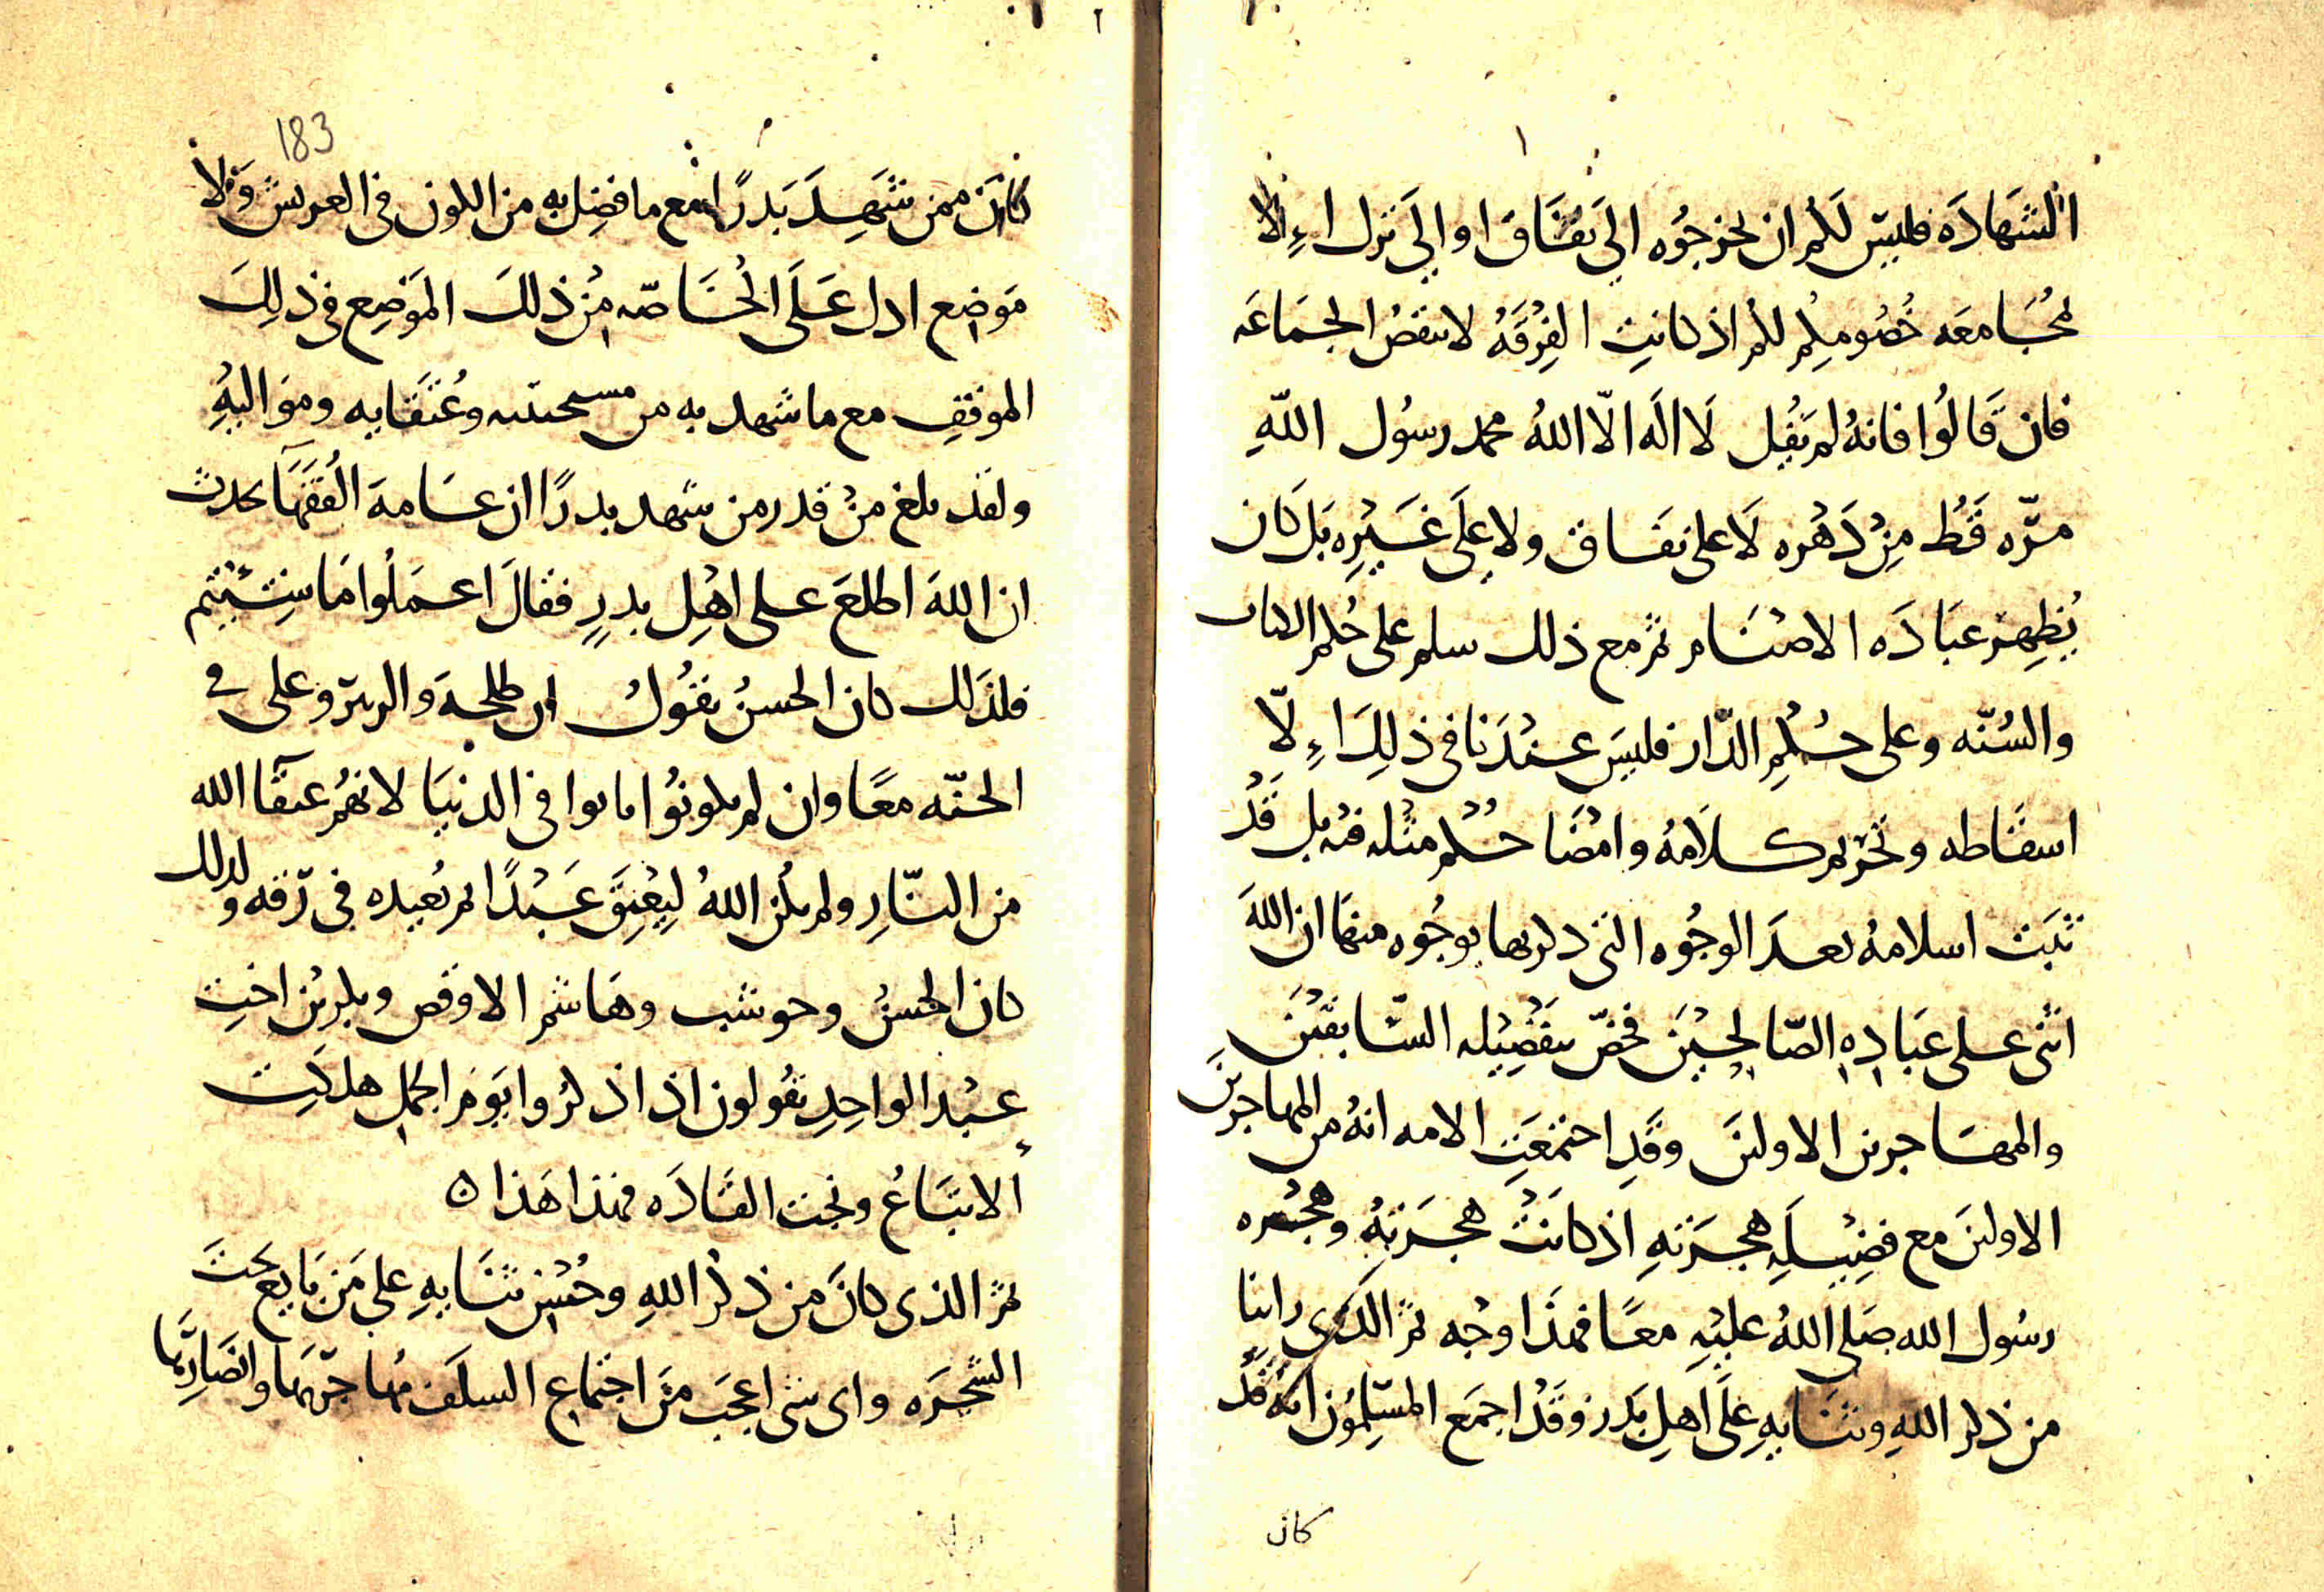 ١
الشهادَه فليس لكم ان تخرجُوه الى نفاق او الى ترك اِلا
مجَامعَه خصُومكم لكم اذ كانتِ الفِرقَهُ لا تنقضُ الجمَاعَه
فان قَالُوا فانهُ لم يَقُل لَا اله الّا اللهُ محمد رسُول اللهِ
مرّه قَط مِن دَهْره لَا على نفَاق ولا على غَيرِه بَل كان
يُظهِر عبَادَه الاصْنَام ثم مع ذلك سلم على حُكم الكتاب
والسُنّه وعلى حُكْمِ الدّار فليسَ عندَنا فى ذلِكَ اِلّا
اسقَاطه وتحْريم كلامَهُ وامْضَا حُكْم مثْله فيه بل قَدْ
ثبَت اسلامهُ بعدَ الوجُوه التى ذكرها بوجُوه منهَا ان اللهَ
اثنى على عبَادِهِ الصّالحِيْنَ فخصّ بتَفْضِيْله السّابقيْنَ
والمهَاجرين الاولينَ وقَدِ اجتمعَتِ الامه انهُ من المهاجرينَ
الاولينَ مع فضِيْلَهِ هجرَتهِ اذ كانَتْ هجرَتهُ وهجْره
رسُول الله صَلى اللهُ عليْهِ معًا فهذَا وجْه ثم الذى راينا
من ذكر اللهِ وثنَايهِ عَلَى اهلِ بَدر وقَدْ اجمَع المسْلِمُون انهُ قَدْ
كان
٢
183
كانَ ممن شَهِدَ بَدرًا مع ما فضِل به من الكون فى العريش وَلا
مَوضِع ادل عَلَى الخَاصّه مِن ذلكَ الموَضِع فى ذلِكَ
الموقفِ مع ما شهد به من وعُتَقَايه ومَواليهِ
ولقد بلغ منْ قدر من شهد بدرًا ان عَامةَ الفُقَهَا تحدث
ان اللهَ اطلعَ على اهْلِ بدرٍ فقالَ اعمَلُوا مَا شِئْتم
فلذلك كان الحسنُ يقُولُ ان طلحهَ والزبيرَ وعلى فى
الجنّه معًا وان لم يكونُوا ماتوا فى الدنيَا لانهُم عتقَا الله
من النّارِ ولم يكُن اللهُ ليِعْتِقَ عَبْدًا ثم يُعيده فى رّقه ولذلك
كان الحسنُ وحوشب وهَاشم الاوقص وبكر بْن اختِ
عبْد الواحِدِ يقُولون اذا ذكرُوا يَومَ الجمل هلكَتِ
الاتبَاعُ ونجت القَادَه فهذا هَذا ه
ثم الذى كانَ من ذكْر اللهِ وحُسْن ثنَايهِ على مَن بَايع تحتَ
الشجَرَه واى شى اعجَب مِن اجتماع السلَف مُهَاجرّيهَا وانصَارِيّهَا